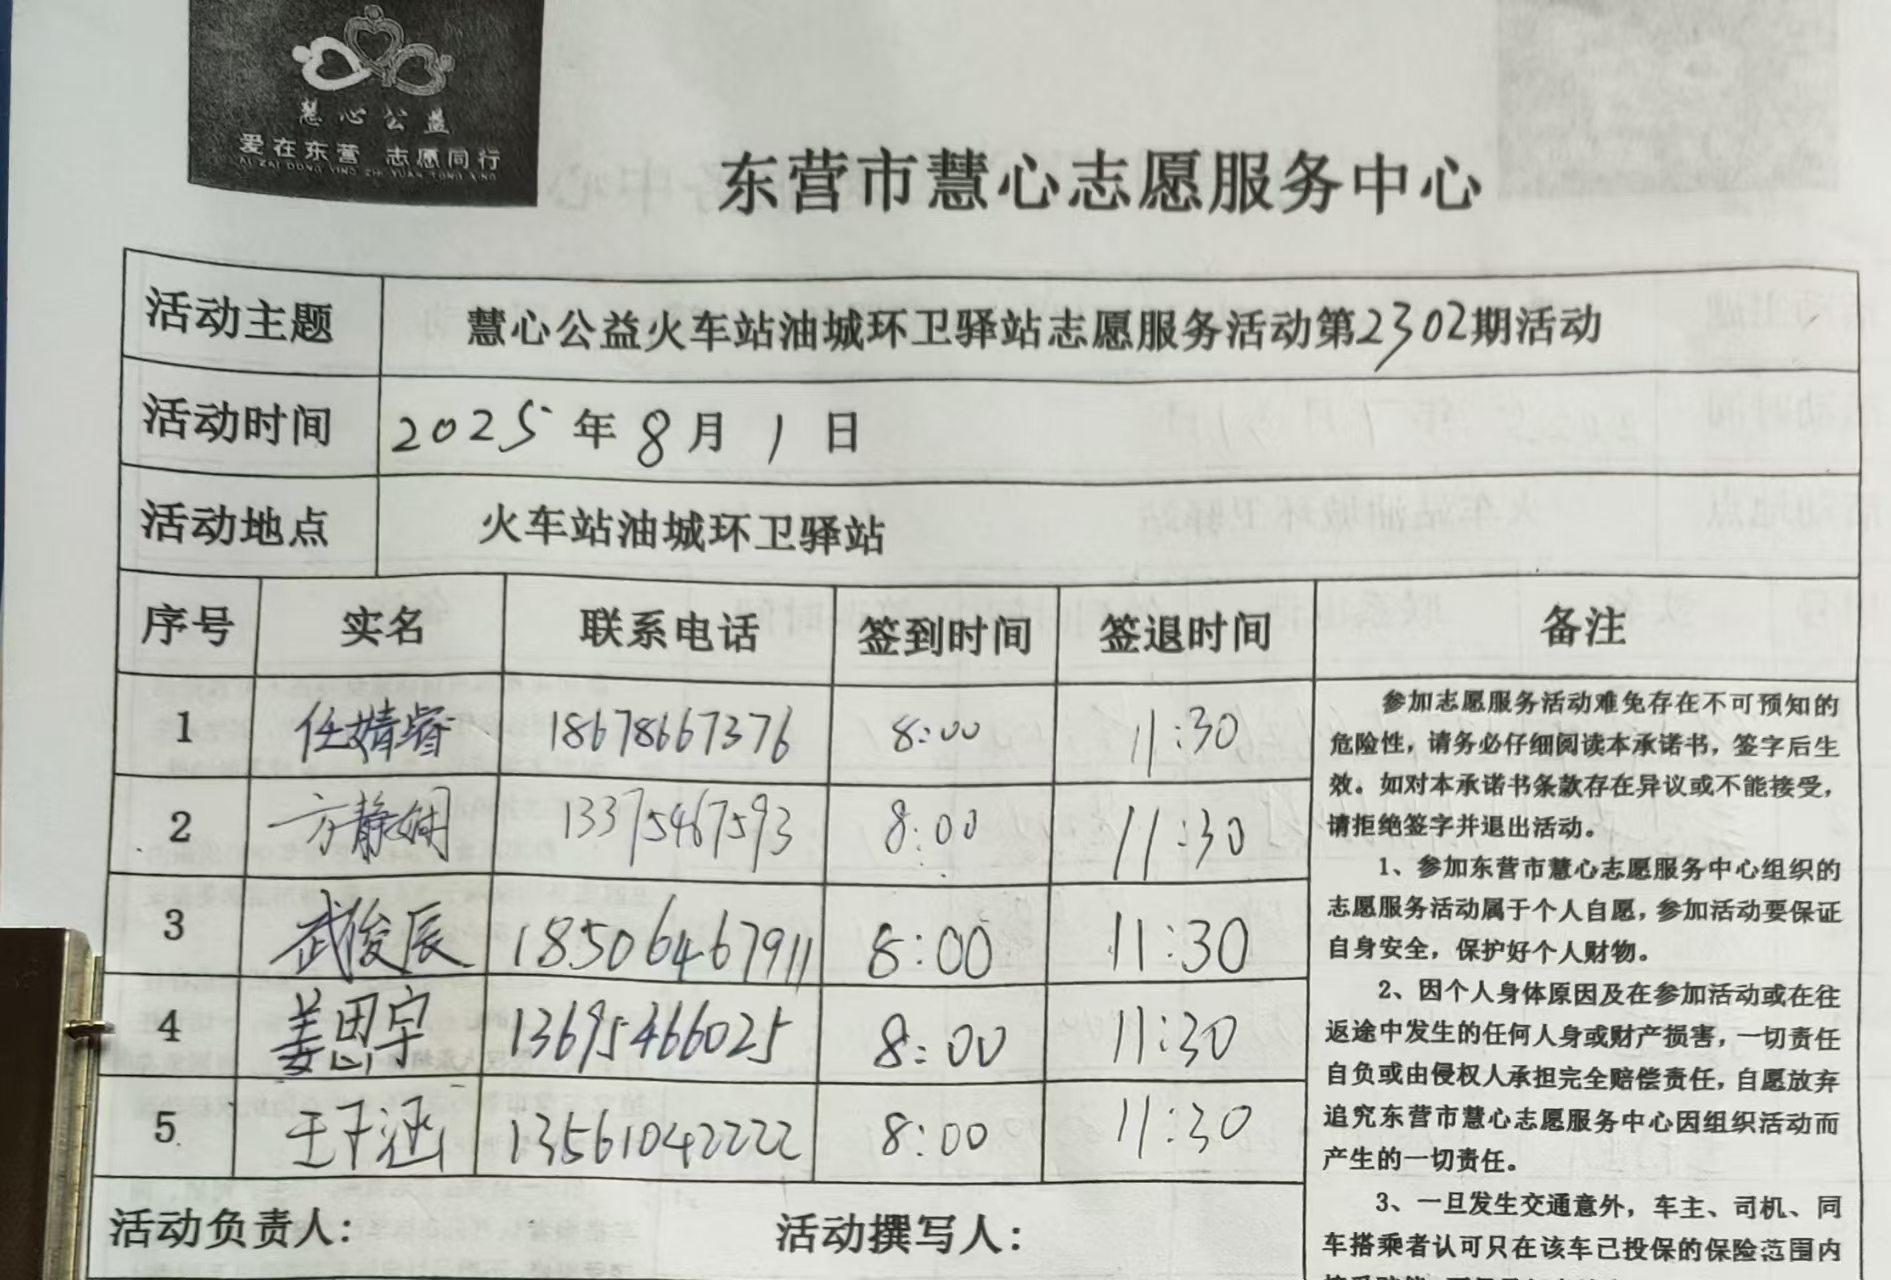 慧心公益
爱在东营 志愿同行
AI ZAI DONG YING ZHI YUAN TONG XING
东营市慧心志愿服务中心
活动主题 慧心公益火车站油城环卫驿站志愿服务活动第2302期活动
活动时间 2025年8月1日
活动地点 火车站油城环卫驿站
序号 实名 联系电话 签到时间 签退时间 备注
1 任婧睿 18678667376 8:00 11:30
2 方静娴 13375467593 8:00 11:30
3 武俊辰 18506467911 8:00 11:30
4 姜思宇 13695466025 8:00 11:30
5 王子涵 13561042222 8:00 11:30
参加志愿服务活动难免存在不可预知的
危险性，请务必仔细阅读本承诺书，签字后生
效。如对本承诺书条款存在异议或不能接受，
请拒绝签字并退出活动。
1、参加东营市慧心志愿服务中心组织的
志愿服务活动属于个人自愿，参加活动要保证
自身安全，保护好个人财物。
2、因个人身体原因及在参加活动或在往
返途中发生的任何人身或财产损害，一切责任
自负或由侵权人承担完全赔偿责任，自愿放弃
追究东营市慧心志愿服务中心因组织活动而
产生的一切责任。
3、一旦发生交通意外，车主、司机、同
车搭乘者认可只在该车已投保的保险范围内
活动负责人： 活动撰写人：